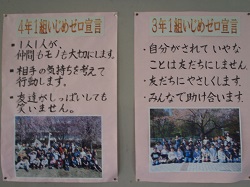 ４年１組いじめゼロ宣言
●１人１人が、
仲間もモノも大切にします。
●相手の気持ちを考えて
行動します。
●友達がしっぱいしても
笑いません。
３年１組いじめゼロ宣言
・自分がされていやな
ことは友だちにしません。
・友だちにやさしくします。
・みんなで助け合います。